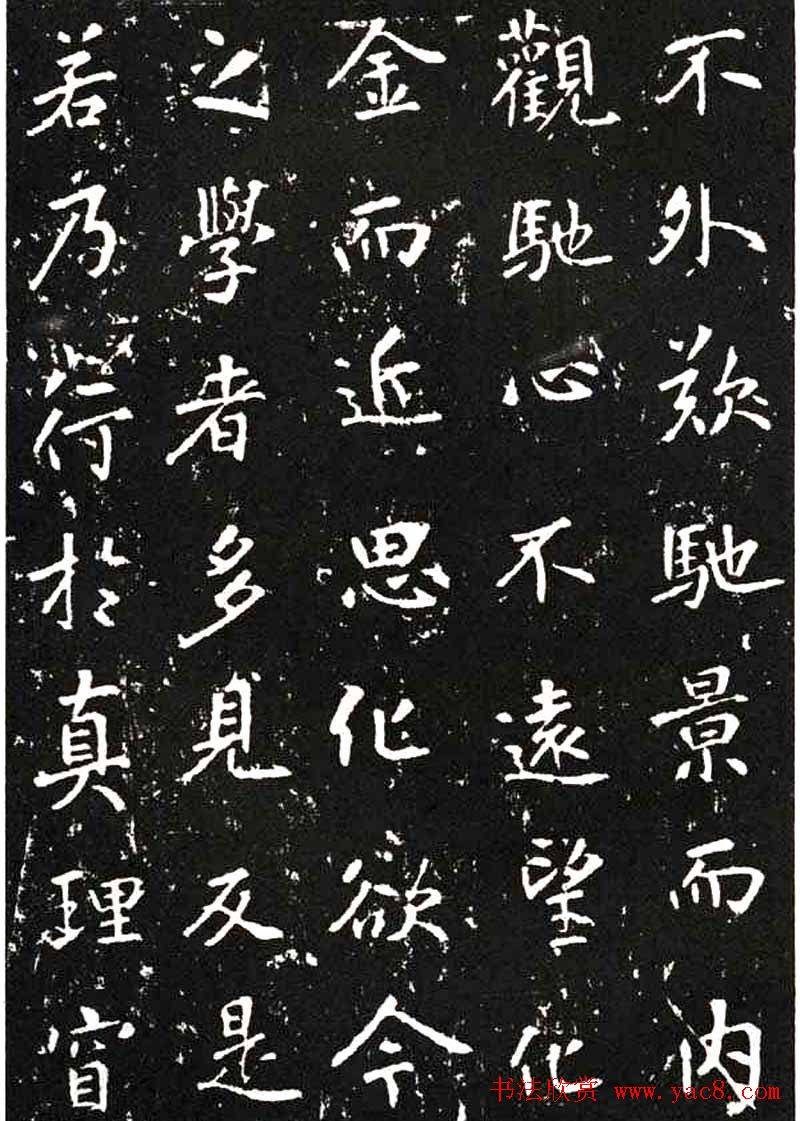 不外歎馳景而内
觀馳心不遠望化
金而近思化欲今
之學者多見反是
若乃苻於真理窅
书法欣赏 www.yac8.com